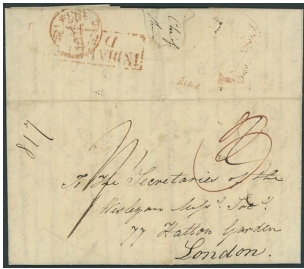 INDIA
817
To The Secretaries of the
Wesleyan Missy. Socy.
77 Hatton Garden
London.